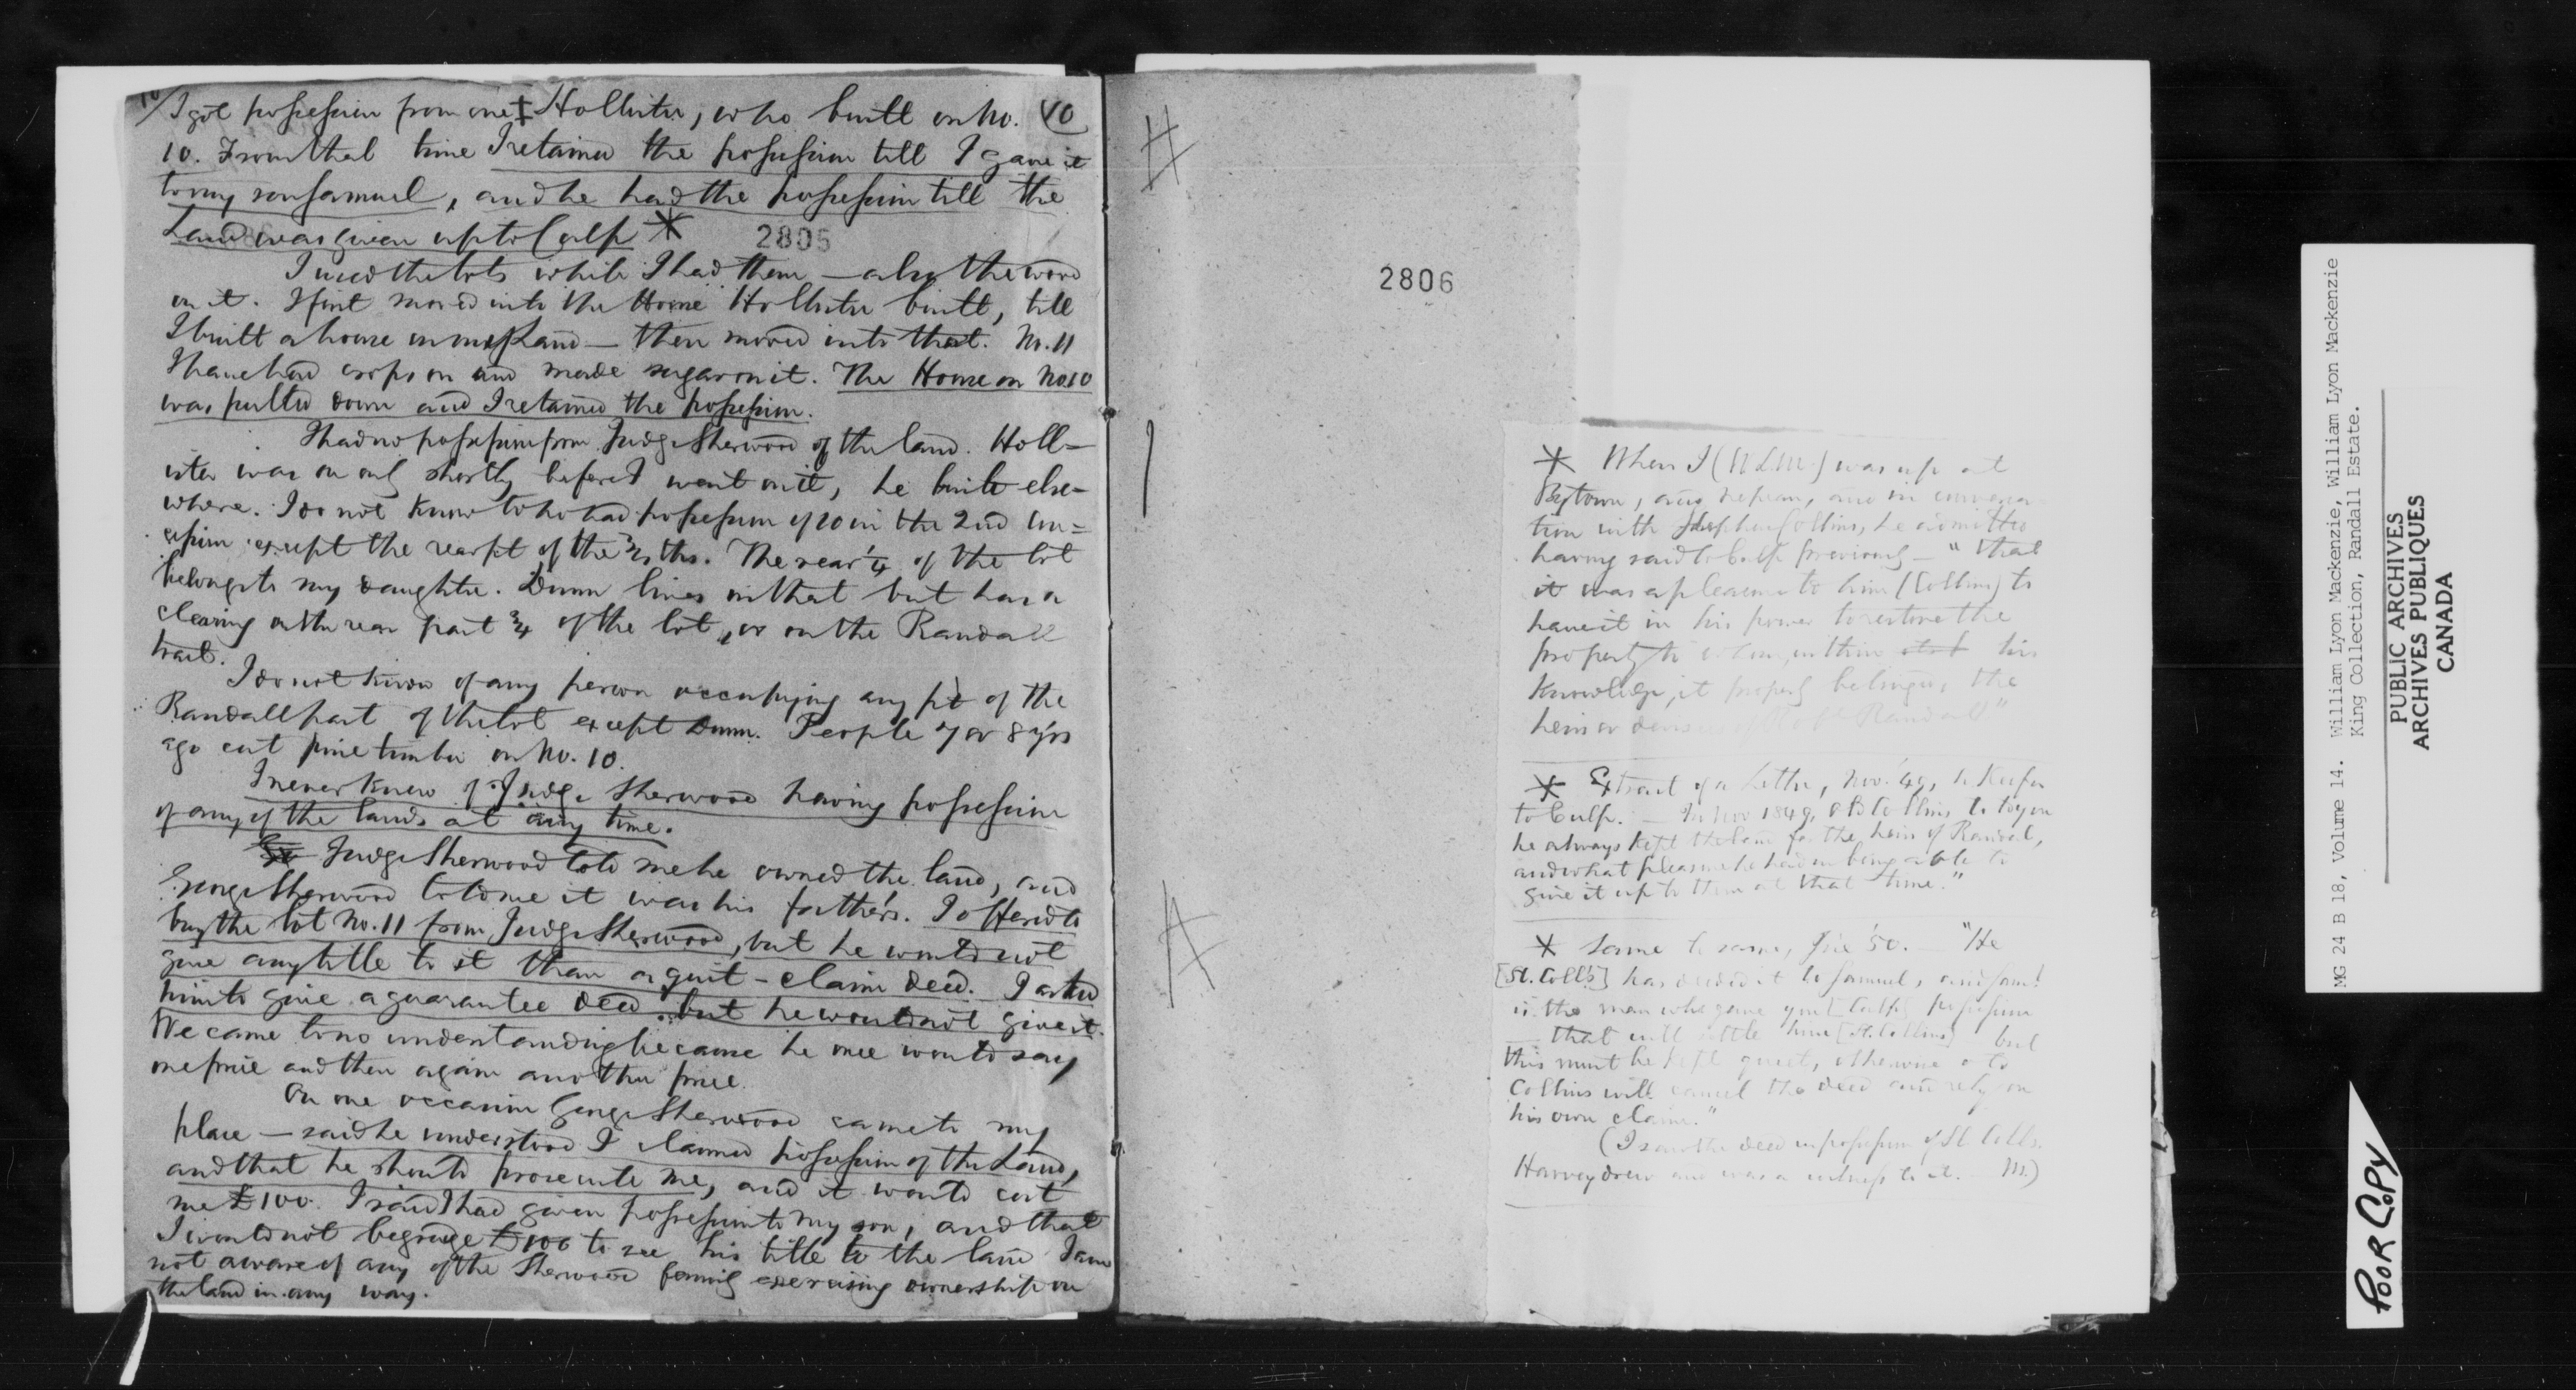 10/ I got possession from one ‡ Hollister, who built on No. (10)
10. From that time I retained the possession till I gave it
to my son Samuel, and he had the possession till the
Land was given up to Culp * 2805
I used the lots while I had them — also the wood
on it. I first moved into the House Hollister built, till
I built a house on my Land — then moved into that. No. 11
I have had crops on and made sugar on it. The House on No 10
was pulled down and I retained the possession.
I had no possession from Judge Sherwood of the land. Holl-
ister was on only shortly before I went on it, he built else-
where. I do not know who had possession of 10 in the 2nd Con=
cession except the rear pt of the ths. The rear ¼ of the lot
belongs to my daughter. Dunn lives on that but has a
clearing on the rear part ¾ of the lot, or on the Randall
tract.
I do not know of any person occupying any pt of the
Randall part of the lot except Dunn. People 7 or 8 yrs
ago cut pine timber on No. 10.
I never knew of Judge Sherwood having possession
of any of the lands at any time.
Judge Sherwood told me he owned the land, and
George Sherwood told me it was his father's. I offered to
buy the lot No. 11 from Judge Sherwood, but he would not
give any title to it than a quit-claim deed. I asked
him to give a guarantee deed, but he would not give it.
We came to no understanding because he once would say
one price and then again another price.
On one occasion George Sherwood came to my
place — said he understood I claimed possession of the Land,
and that he should prosecute me, and it would cost
me £100. I said I had given possession to my son, and that
I would not begrudge £100 to see his title to the land I am
not aware of any of the Sherwood family exercising ownership on
the land in any way.
2806
* When I (WLM.) was up at
Bytown, and Nepean, and in conversa
tion with Stephen Collins, he admitted
having said to Culp previously — "that
it was a pleasure to him (Collins) to
have it in his power to restore the
property to whom, within his
knowledge, it properly belonged, the
heirs or Randall"
* Extract of a Letter, Nov. '49, to Keefer
to Culp. — In Nov 1849, Collins to you
he always kept the land for the heirs of Randal,
and what pleasure he had in being able to
give it up to them at that time."
* Same to same, '50. — "He
[St. Coll's] has deeded it to Samuel, and Saml
is the man who gave you [Culp] possession
— that will settle him [St. Collins] but
this must be kept quiet, otherwise old
Collins will cancel the deed and rely on
his own claim."
(I saw the deed in possession of St Colls.
Harvey drew and was a witness to it. M.)
MG 24 B 18, Volume 14. William Lyon Mackenzie, William Lyon Mackenzie
King Collection, Randall Estate.
PUBLIC ARCHIVES
ARCHIVES PUBLIQUES
CANADA
POOR COPY